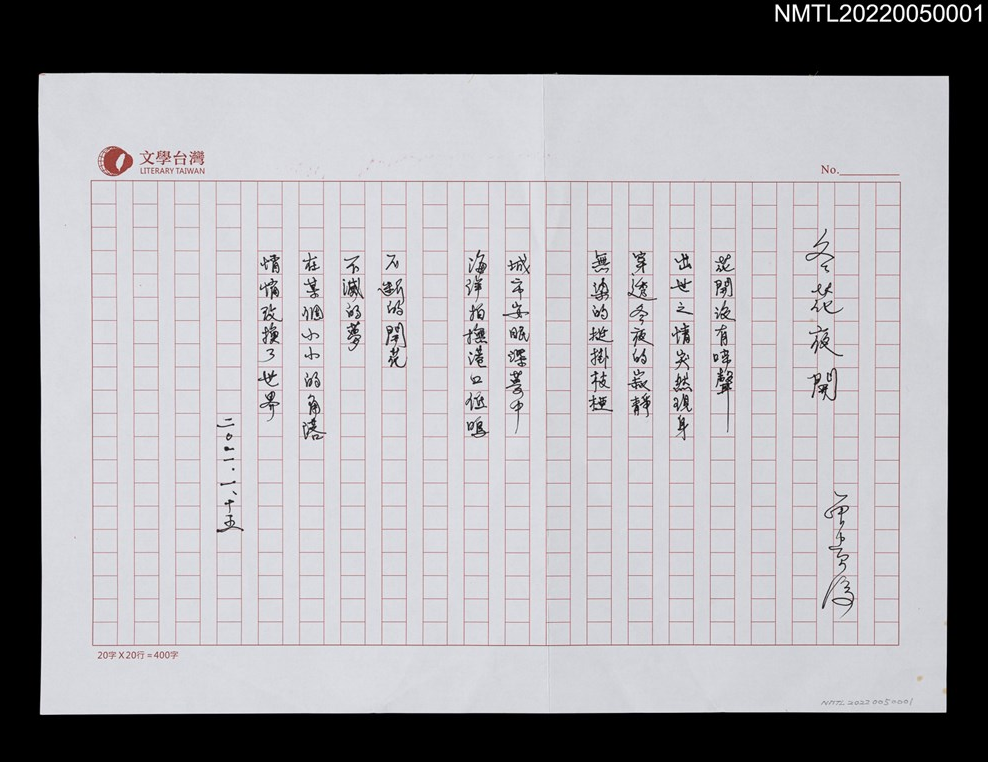 NMTL20220050001
文學台灣
LITERARY TAIWAN
No.
冬花夜開
曾貴海
花開沒有啼聲
出世之情突然現身
穿透冬夜的寂靜
無染的掛枝椏
城市安眠深夢中
海洋拍撫港口低鳴
不斷的開花
不滅的夢
在某個小小的角落
悄悄改換了世界
二〇二一.一.十五
20字X20行=400字
NMTL20220050001